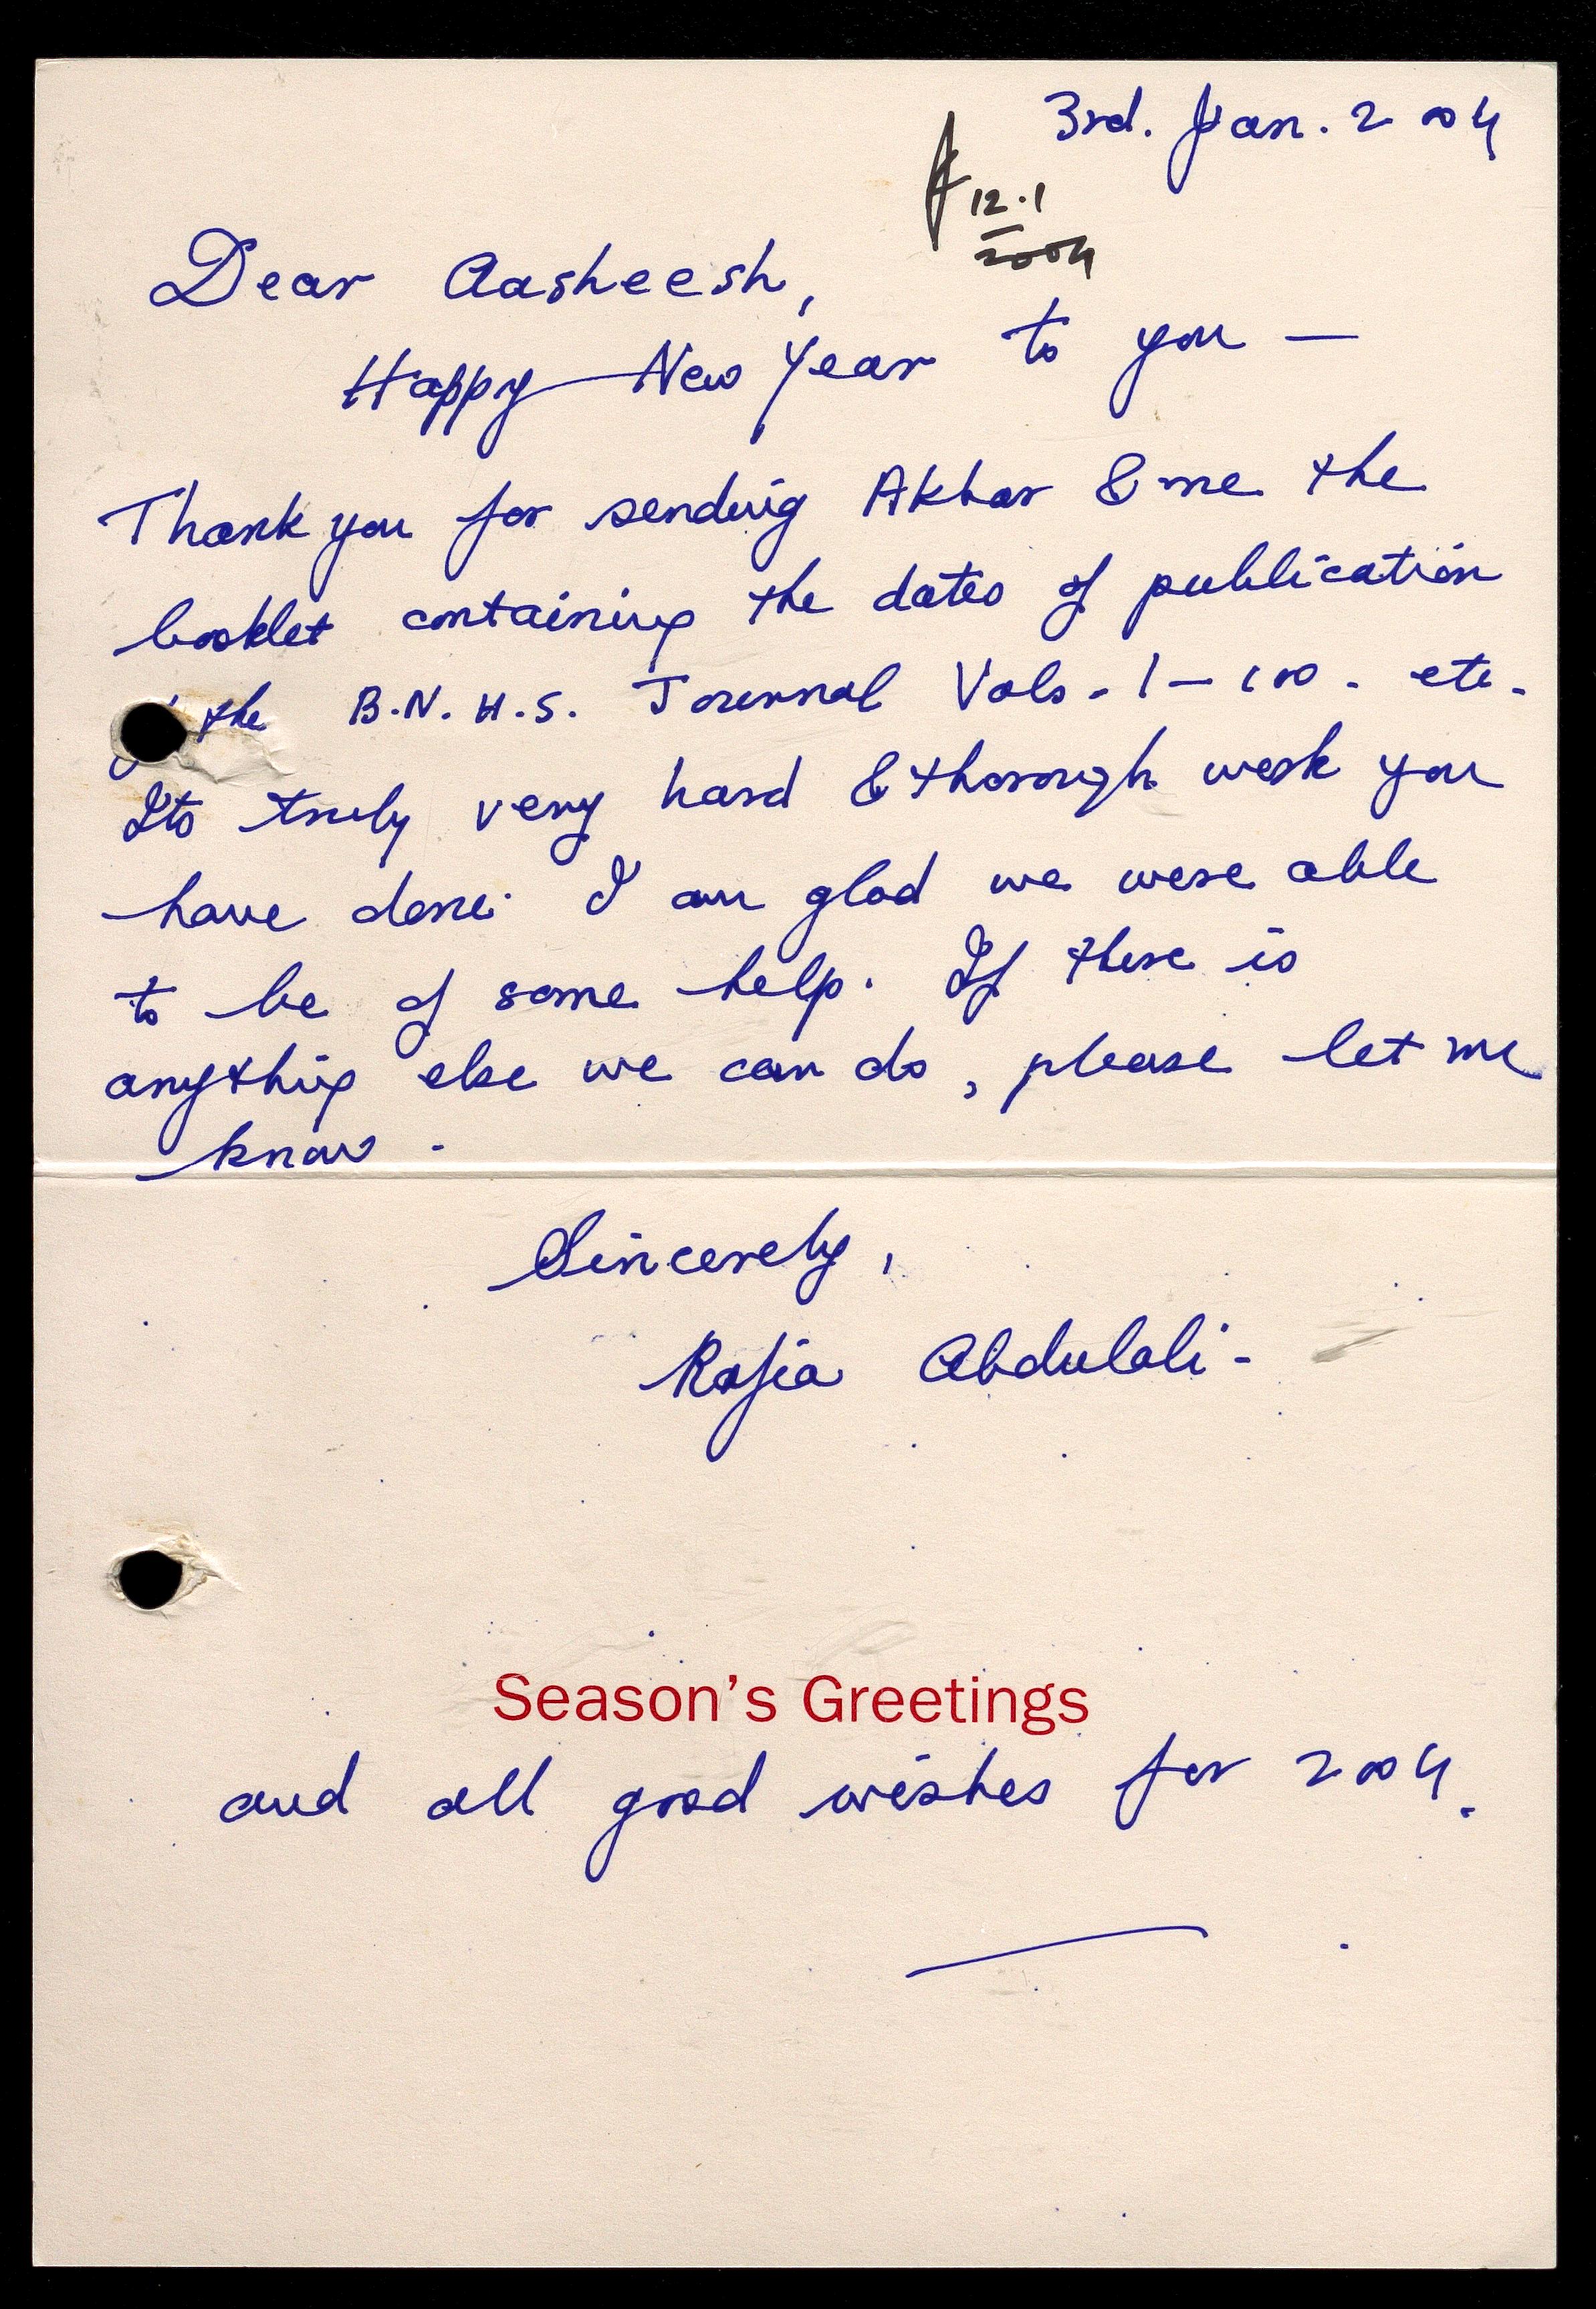 3rd. Jan. 2004
12.1
2004
Dear Aasheesh,
Happy New Year to you —
Thank you for sending Akbar & me the
booklet containing the dates of publication
the B.N.H.S. Journal Vols. 1–100. etc.
Its truly very hard & thorough work you
have done. I am glad we were able
to be of some help. If there is
anything else we can do, please let me
know.
Sincerely,
Rafia Abdulali-
Season's Greetings
and all good wishes for 2004.